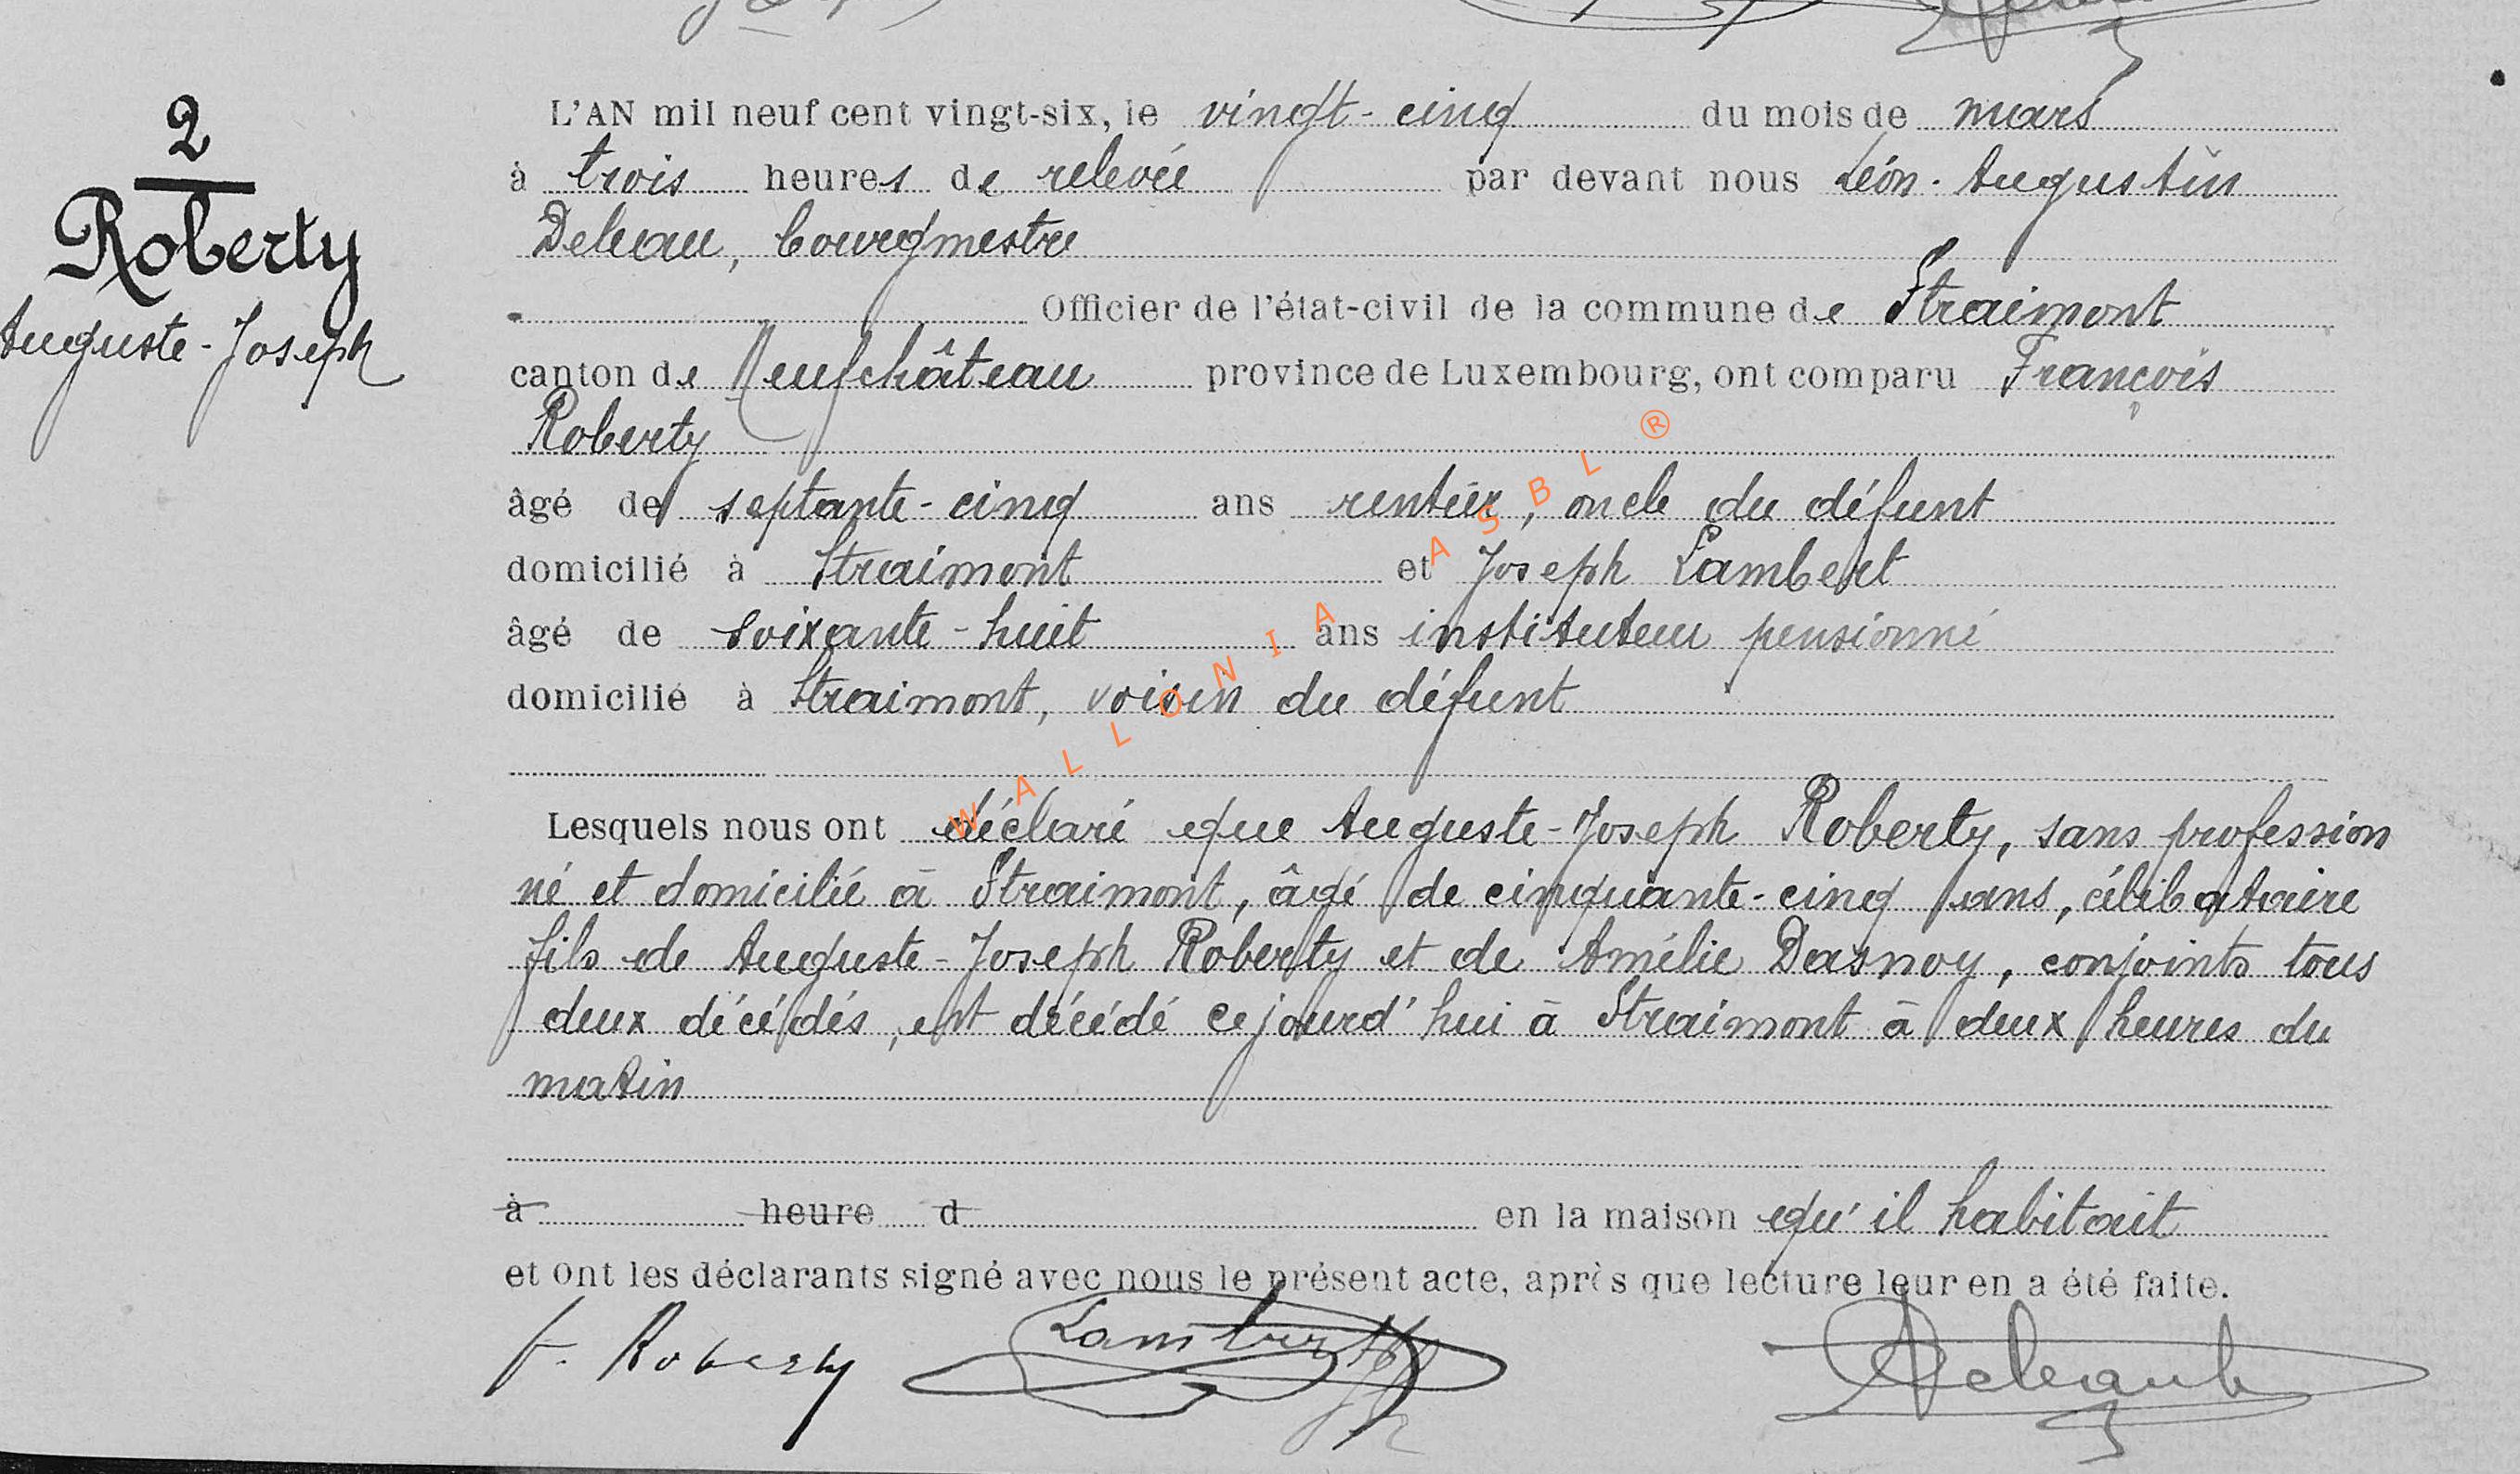 2
Roberty
Auguste-Joseph
L'AN mil neuf cent vingt-six, le vingt-cinq du mois de mars
à trois heures de relevée par devant nous Léon-Augustin
Deleau, bourgmestre
Officier de l'état-civil de la commune de Straimont
canton de Neufchâteau province de Luxembourg, ont comparu François
Roberty
âgé de septante-cinq ans rentier, oncle du défunt
domicilié à Straimont et Joseph Lambert
âgé de soixante-huit ans instituteur pensionné
domicilié à Straimont, voisin du défunt
Lesquels nous ont déclaré que Auguste-Joseph Roberty, sans profession
né et domicilié à Straimont, âgé de cinquante-cinq ans, célibataire
fils de Auguste-Joseph Roberty et de Amélie Dasnoy, conjoints tous
deux décédés, est décédé cejourd'hui à Straimont à deux heures du
matin
à heure d en la maison qu'il habitait
et ont les déclarants signé avec nous le présent acte, après que lecture leur en a été faite.
F. Roberty Lambert
WALLONIA ASBL ®